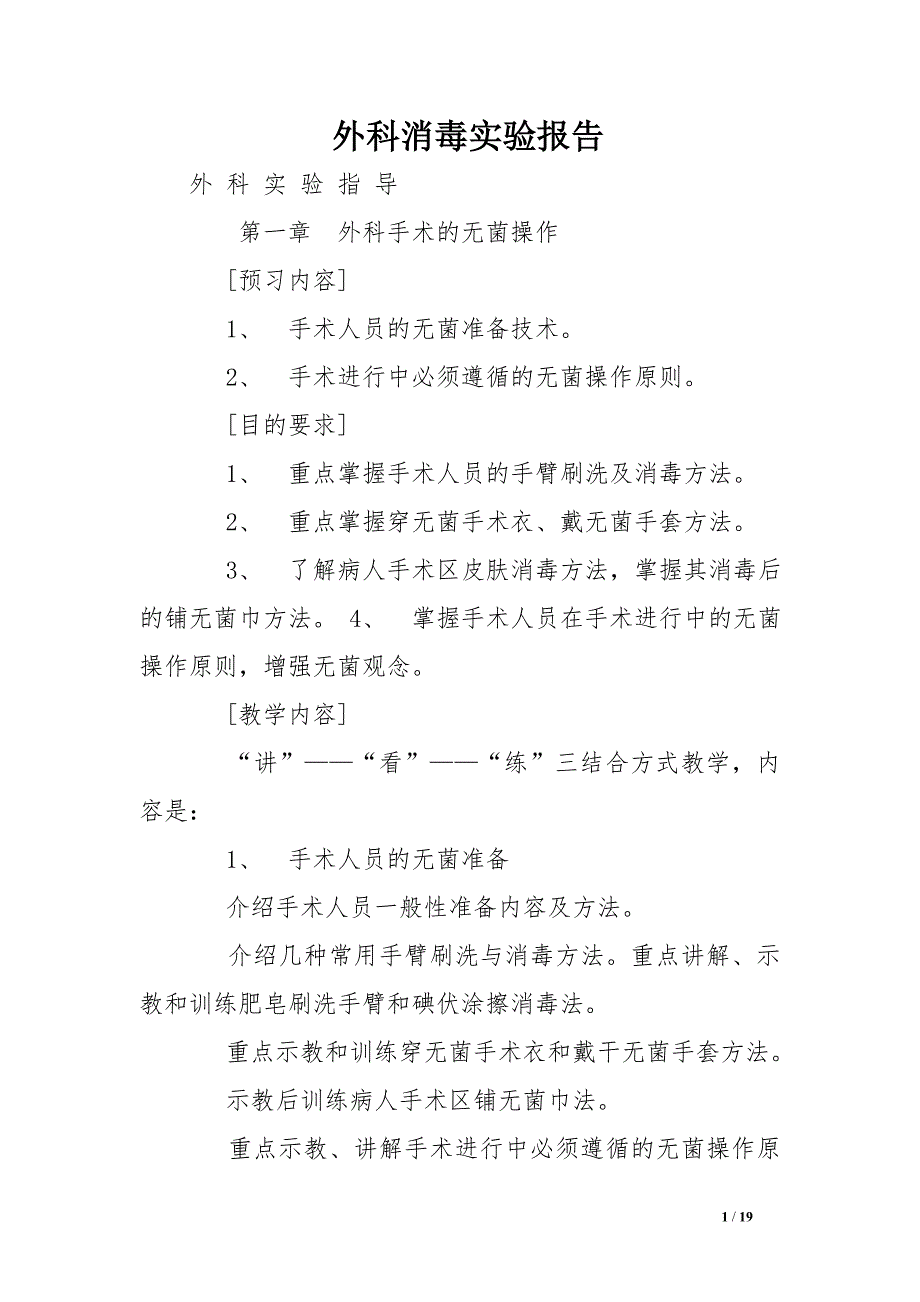 外科消毒实验报告
外 科 实 验 指 导
第一章　外科手术的无菌操作
[预习内容]
1、　手术人员的无菌准备技术。
2、　手术进行中必须遵循的无菌操作原则。
[目的要求]
1、　重点掌握手术人员的手臂刷洗及消毒方法。
2、　重点掌握穿无菌手术衣、戴无菌手套方法。
3、　了解病人手术区皮肤消毒方法，掌握其消毒后
的铺无菌巾方法。 4、　掌握手术人员在手术进行中的无菌
操作原则，增强无菌观念。
[教学内容]
“讲”——“看”——“练”三结合方式教学，内
容是：
1、　手术人员的无菌准备
介绍手术人员一般性准备内容及方法。
介绍几种常用手臂刷洗与消毒方法。重点讲解、示
教和训练肥皂刷洗手臂和碘伏涂擦消毒法。
重点示教和训练穿无菌手术衣和戴干无菌手套方法。
示教后训练病人手术区铺无菌巾法。
重点示教、讲解手术进行中必须遵循的无菌操作原
1 / 19